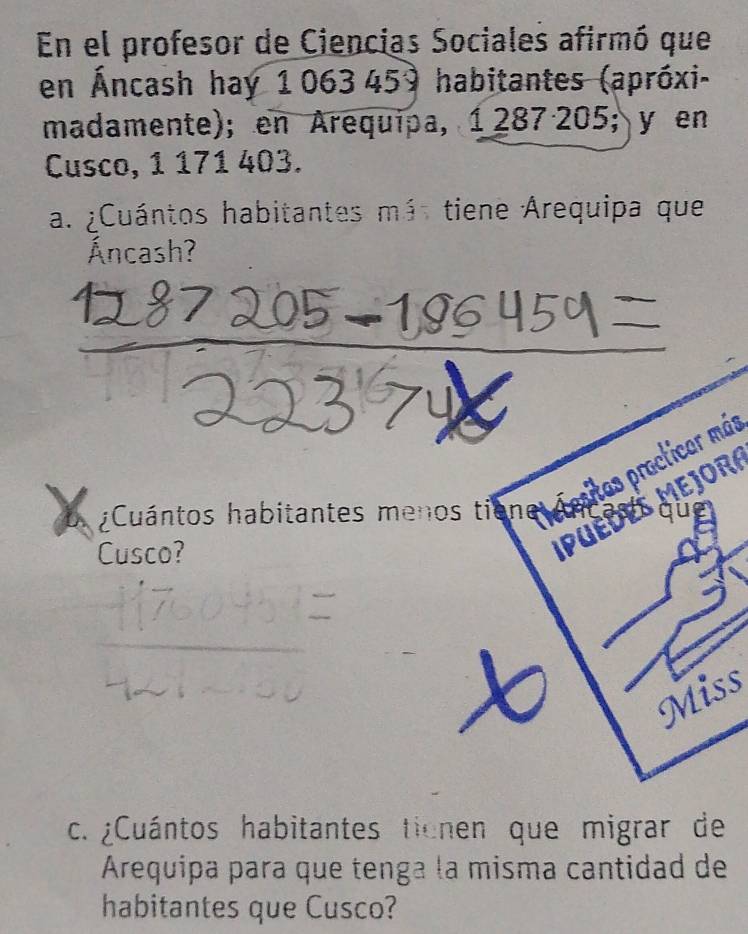 En el profesor de Ciencias Sociales afirmó que
en Áncash hay 1 063 459 habitantes (apróxi-
madamente); en Arequipa, 1 287 205; y en
Cusco, 1 171 403.
a. ¿Cuántos habitantes más tiene Arequipa que
Áncash?
1287 205 - 186 459 =
22374
Necesitas practicar más
¡PUEDES MEJORA
b. ¿Cuántos habitantes menos tiene Áncash que
Cusco?
Miss
c. ¿Cuántos habitantes tienen que migrar de
Arequipa para que tenga la misma cantidad de
habitantes que Cusco?